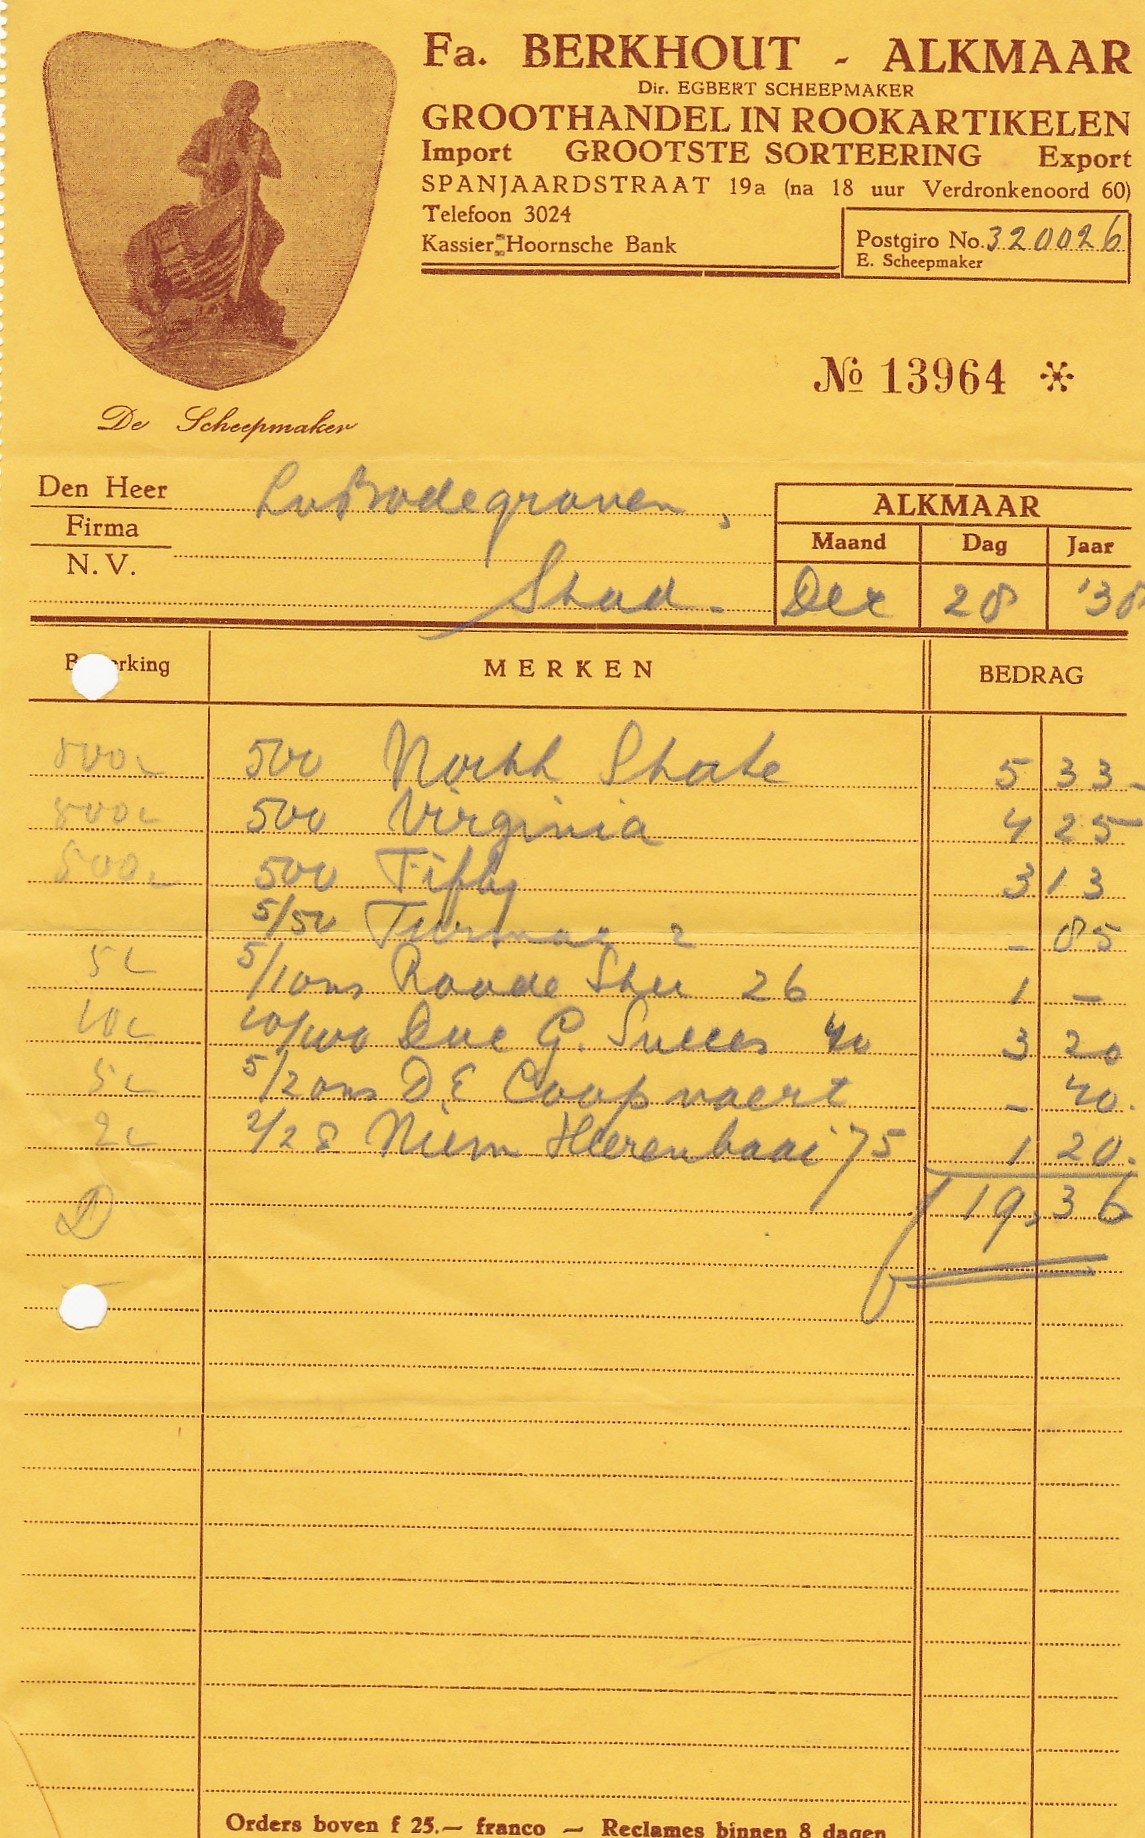 Fa. BERKHOUT - ALKMAAR
Dir. EGBERT SCHEEPMAKER
GROOTHANDEL IN ROOKARTIKELEN
Import GROOTSTE SORTEERING Export
SPANJAARDSTRAAT 19a (na 18 uur Verdronkenoord 60)
Telefoon 3024
Kassier: Hoornsche Bank
Postgiro No. 320026
E. Scheepmaker
No 13964 *
De Scheepmaker
Den Heer LvBodegraven,
Firma
N. V.
Stad.
ALKMAAR
Maand Dag Jaar
Dec 28 '38
B rking MERKEN BEDRAG
500 500 North State 5 33-
500 500 Virginia 4 25-
500 500 Fifty 3 13
5/50 Turmac 2 - 85
5 5/1 ons Roode Ster 26 1 -
10 10/100 Duc G. Succes 40 3 20
5 5/2 ons D.E Coopvaert - 40.
2 2/2 Niem Heerenbaai 75 1 20.
D f 19,36
Orders boven f 25.— franco — Reclames binnen 8 dagen